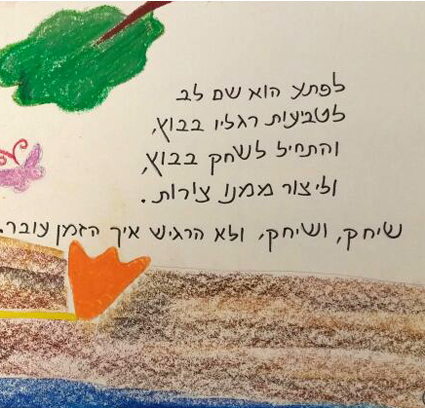 לפתע הוא שם לב
לטביעות רגליו בבוץ,
והתחיל לשחק בבוץ,
וליצור ממנו צורות.
שיחק, ושיחק, ולא הרגיש איך הזמן עובר.